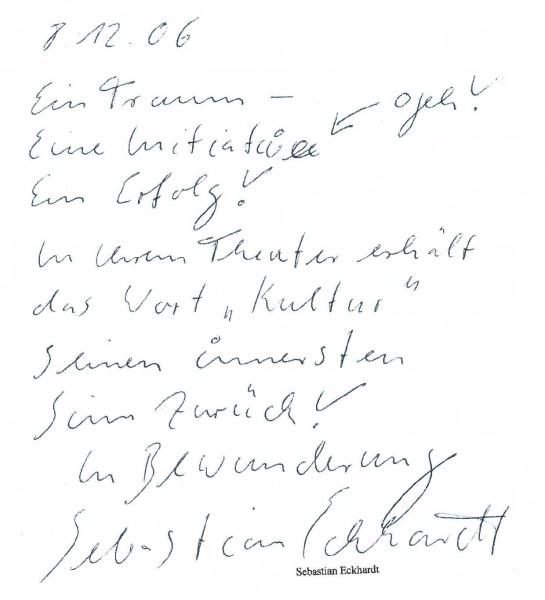 8.12.06
Ein Traum –
Eine Initiative
Ein Erfolg!
In Ihrem Theater erhält
das Wort „Kultur"
seinen innersten
Sinn zurück!
In Bewunderung
Sebastian Eckhardt
Sebastian Eckhardt